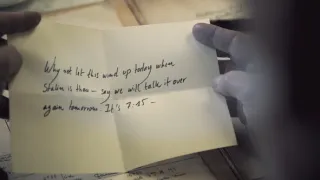 Why not let this wind up today when
Stalin is thru – say we will talk it over
again tomorrow. It's 7.45 –